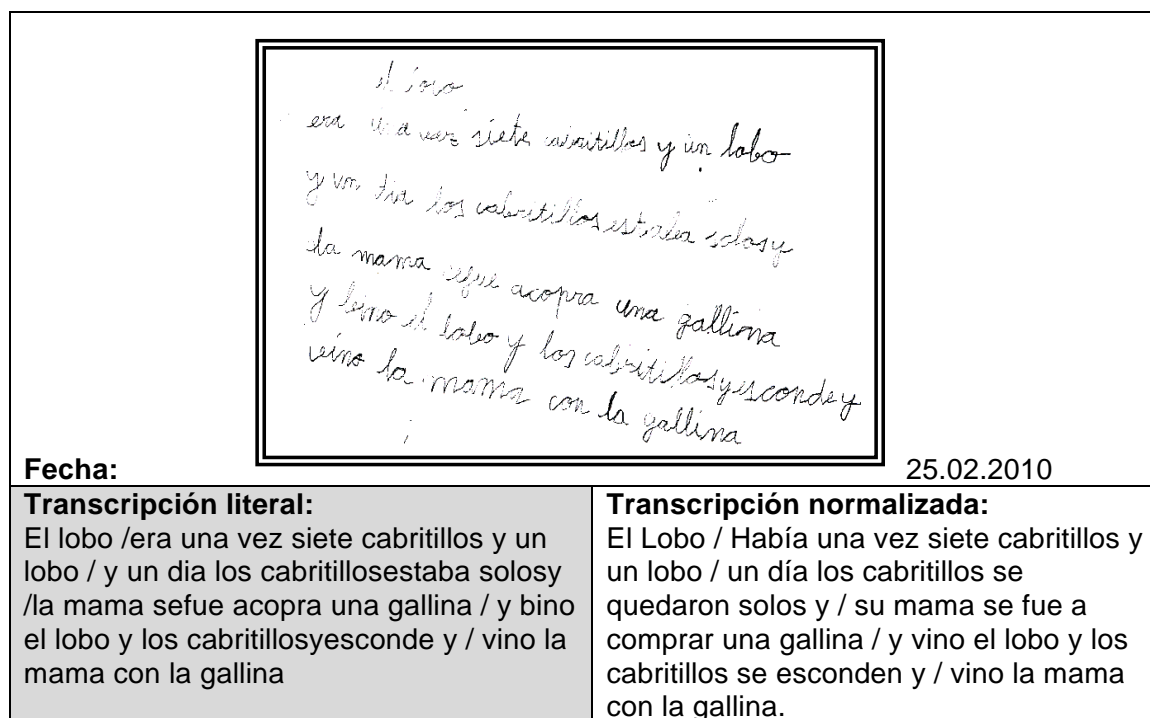 el lobo
era una vez siete cabritillos y un lobo
y un dia los cabritillosestaba solosy
la mama cefue acopra una gallina
y bino el lobo y los cabritillosyesconde y
vino la mama con la gallina
Fecha: 25.02.2010
Transcripción literal:
El lobo /era una vez siete cabritillos y un
lobo / y un dia los cabritillosestaba solosy
/la mama sefue acopra una gallina / y bino
el lobo y los cabritillosyesconde y / vino la
mama con la gallina
Transcripción normalizada:
El Lobo / Había una vez siete cabritillos y
un lobo / un día los cabritillos se
quedaron solos y / su mama se fue a
comprar una gallina / y vino el lobo y los
cabritillos se esconden y / vino la mama
con la gallina.